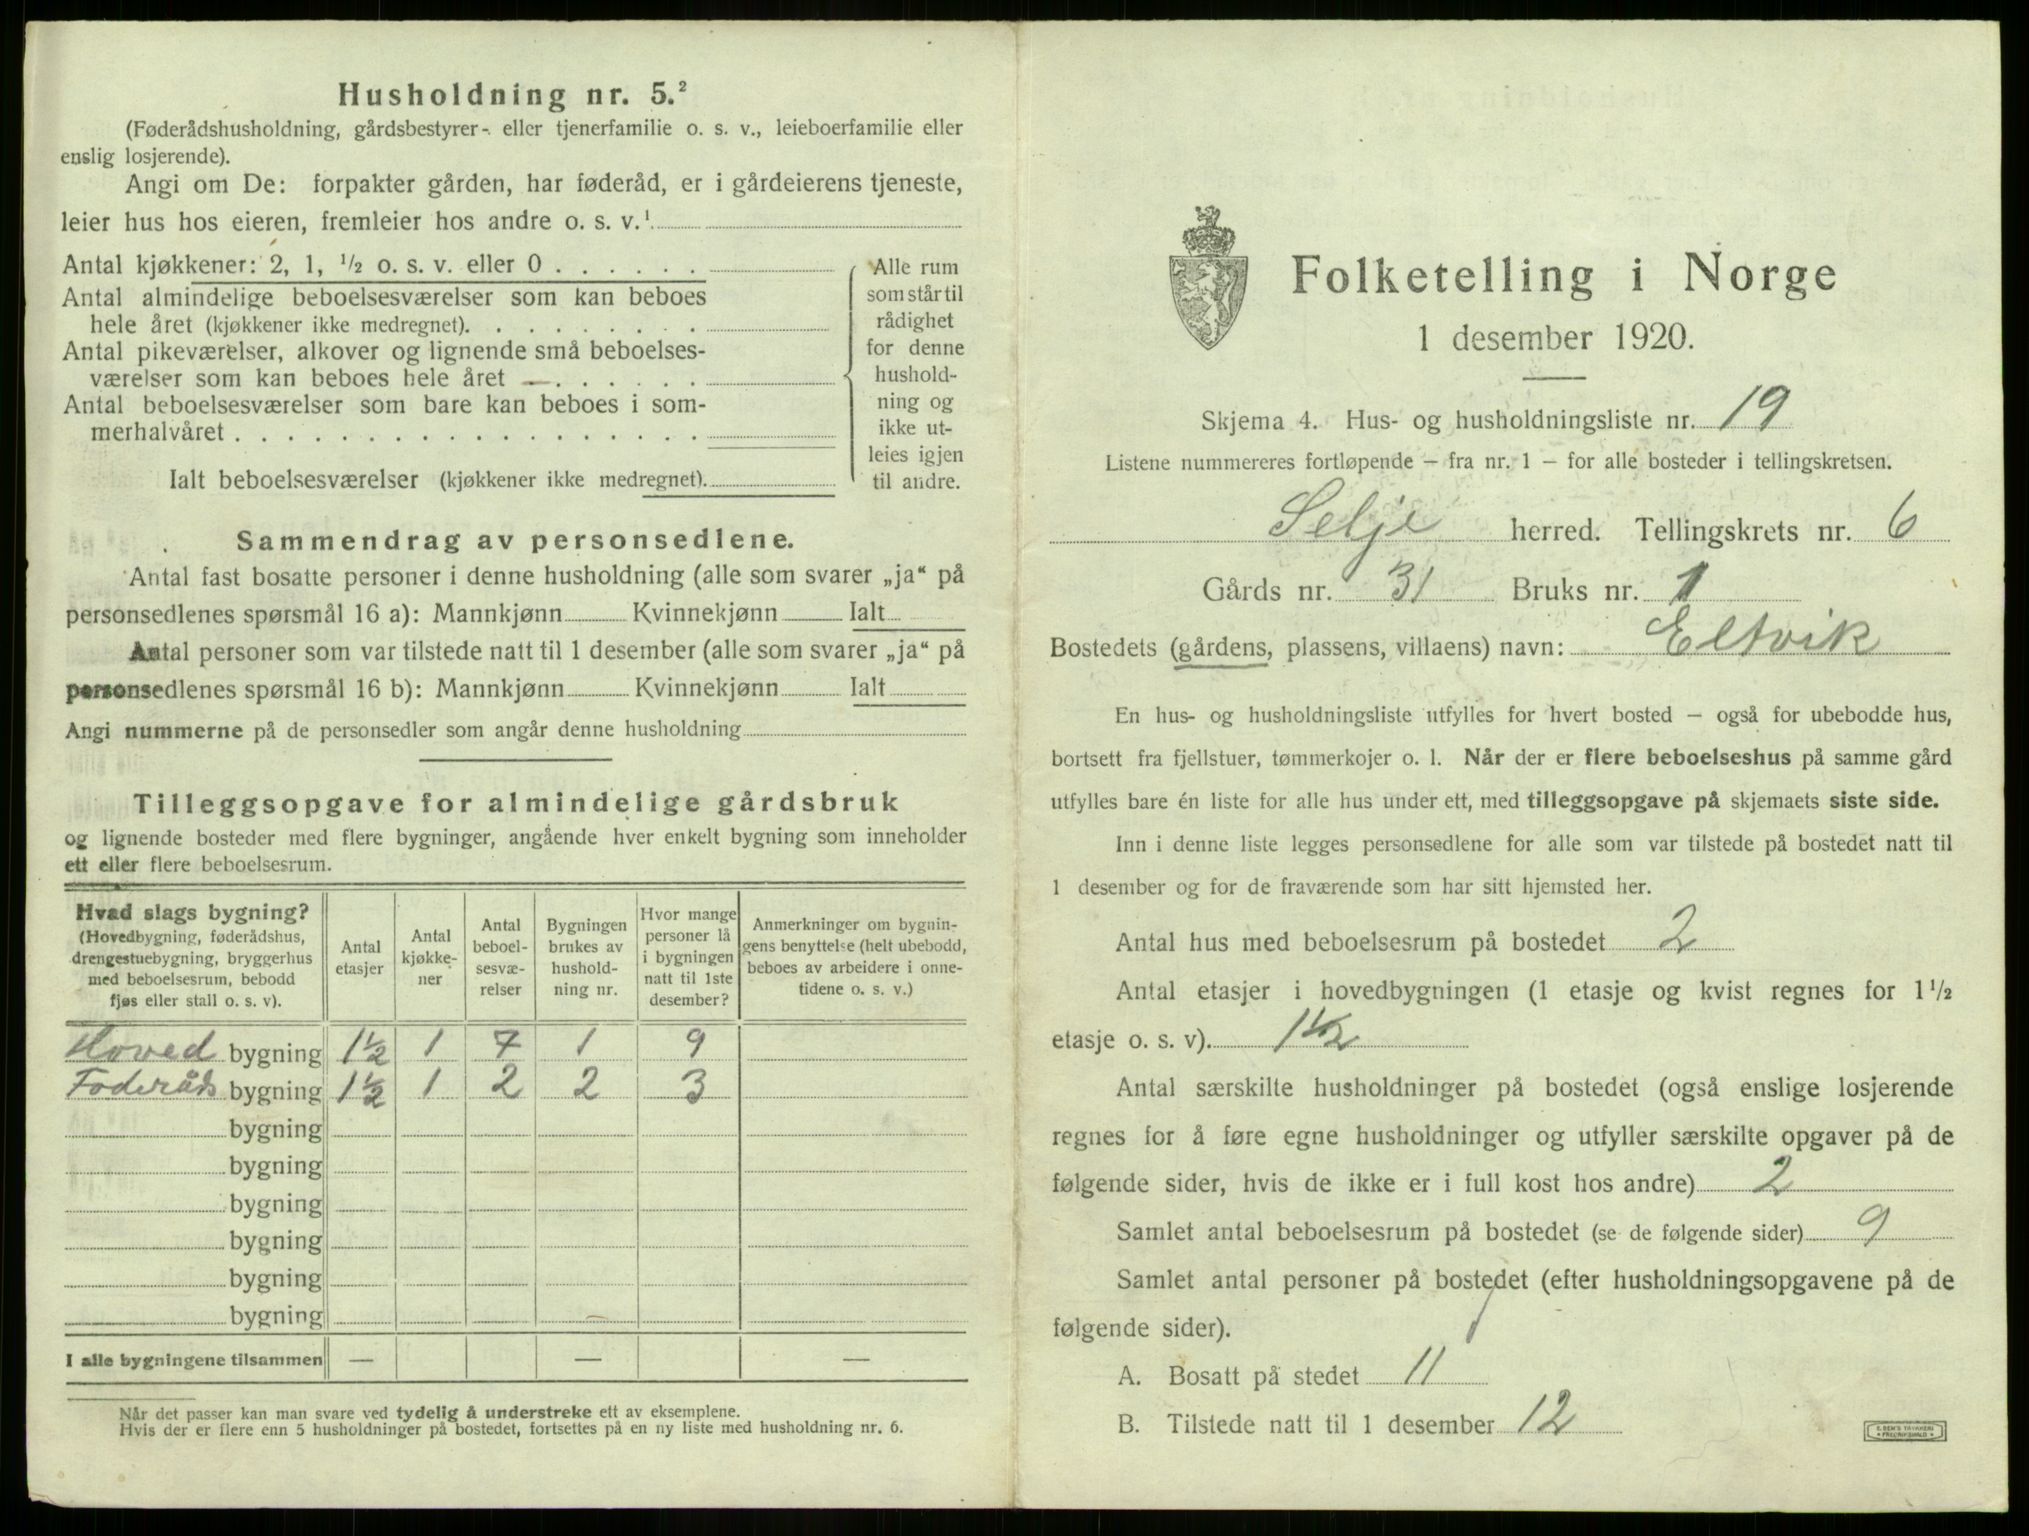 Husholdning nr. 5.²
(Føderådshusholdning, gårdsbestyrer- eller tjenerfamilie o. s. v., leieboerfamilie eller
enslig losjerende).
Angi om De: forpakter gården, har føderåd, er i gårdeierens tjeneste,
leier hus hos eieren, fremleier hos andre o. s. v.¹
Antal kjøkkener: 2, 1, ½ o. s. v. eller 0 . . . . . .
Antal almindelige beboelsesværelser som kan beboes
hele året (kjøkkener ikke medregnet). . . . . . . . .
Antal pikeværelser, alkover og lignende små beboelses-
værelser som kan beboes hele året . . . . . .
Antal beboelsesværelser som bare kan beboes i som-
merhalvåret . . . . . . . . . . . . . . . . . .
Ialt beboelsesværelser (kjøkkener ikke medregnet).
Alle rum
som står til
rådighet
for denne
hushold-
ning og
ikke ut-
leies igjen
til andre.
Sammendrag av personsedlene.
Antal fast bosatte personer i denne husholdning (alle som svarer „ja“ på
personsedlenes spørsmål 16 a): Mannkjønn Kvinnekjønn Ialt
Antal personer som var tilstede natt til 1 desember (alle som svarer „ja“ på
personsedlenes spørsmål 16 b): Mannkjønn Kvinnekjønn Ialt
Angi nummerne på de personsedler som angår denne husholdning
Tilleggsopgave for almindelige gårdsbruk
og lignende bosteder med flere bygninger, angående hver enkelt bygning som inneholder
ett eller flere beboelsesrum.
Hvad slags bygning?
(Hovedbygning, føderådshus,
drengestuebygning, bryggerhus
med beboelsesrum, bebodd
fjøs eller stall o. s. v).
Antal
etasjer
Antal
kjøkke-
ner
Antal
beboel-
sesvæ-
relser
Bygningen
brukes av
hushold-
ning nr.
Hvor mange
personer lå
i bygningen
natt til 1ste
desember?
Anmerkninger om bygnin-
gens benyttelse (helt ubebodd,
beboes av arbeidere i onne-
tidene o. s. v.)
Hoved bygning 1½ 1 7 1 9
Foderåds bygning 1½ 1 2 2 3
bygning
bygning
bygning
bygning
bygning
bygning
I alle bygningene tilsammen — — —
Når det passer kan man svare ved tydelig å understreke ett av eksemplene.
Hvis der er flere enn 5 husholdninger på bostedet, fortsettes på en ny liste med husholdning nr. 6.
Folketelling i Norge
1 desember 1920.
Skjema 4. Hus- og husholdningsliste nr. 19
Listene nummereres fortløpende — fra nr. 1 — for alle bosteder i tellingskretsen.
Selje herred. Tellingskrets nr. 6
Gårds nr. 31 Bruks nr. 1
Bostedets (gårdens, plassens, villaens) navn: Eltvik
En hus- og husholdningsliste utfylles for hvert bosted — også for ubebodde hus,
bortsett fra fjellstuer, tømmerkojer o. l. Når der er flere beboelseshus på samme gård
utfylles bare én liste for alle hus under ett, med tilleggsopgave på skjemaets siste side.
Inn i denne liste legges personsedlene for alle som var tilstede på bostedet natt til
1 desember og for de fraværende som har sitt hjemsted her.
Antal hus med beboelsesrum på bostedet 2
Antal etasjer i hovedbygningen (1 etasje og kvist regnes for 1½
etasje o. s. v). 1½
Antal særskilte husholdninger på bostedet (også enslige losjerende
regnes for å føre egne husholdninger og utfyller særskilte opgaver på de
følgende sider, hvis de ikke er i full kost hos andre) 2
Samlet antal beboelsesrum på bostedet (se de følgende sider) 9
Samlet antal personer på bostedet (efter husholdningsopgavene på de
følgende sider).
A. Bosatt på stedet 11
B. Tilstede natt til 1 desember 12